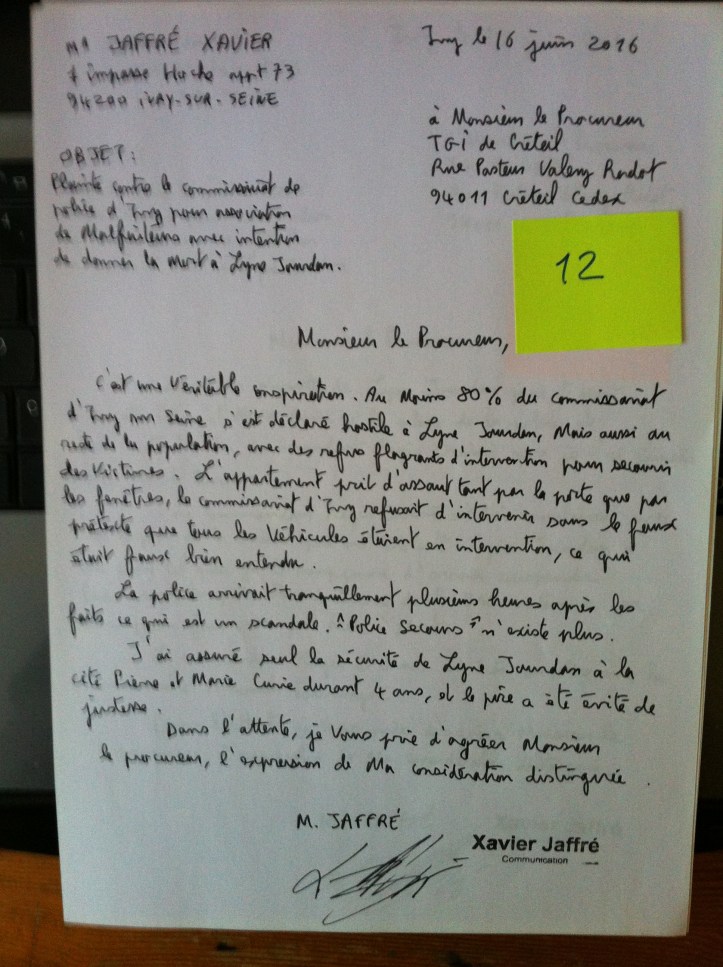 Mr JAFFRÉ XAVIER
impasse Hoche appt 73
94200 IVRY-SUR-SEINE
Ivry le 16 juin 2016
à Monsieur le Procureur
TGI de Créteil
Rue Pasteur Valery Radot
94011 Créteil Cedex
OBJET:
Plainte contre le commissariat de
police d'Ivry pour association
de Malfaiteurs avec intention
de donner la mort à Lyne Jourdan.
12
Monsieur le Procureur,
C'est une véritable conspiration. Au Moins 80% du commissariat
d'Ivry sur Seine s'est déclaré hostile à Lyne Jourdan, Mais aussi au
reste de la population, avec des refus flagrants d'intervention pour secourir
des victimes. L'appartement prit d'assaut tant par la porte que par
les fenêtres, le commissariat d'Ivry refusait d'intervenir sous le faux
prétexte que tous les véhicules étaient en intervention, ce qui
était faux bien entendu.
La police arrivait tranquillement plusieurs heures après les
faits ce qui est un scandale. "Police Secours" n'existe plus.
J'ai assuré seul la sécurité de Lyne Jourdan à la
cité Pierre et Marie Curie durant 4 ans, et le pire a été évité de
justesse.
Dans l'attente, je vous prie d'agréer Monsieur
le procureur, l'expression de Ma considération distinguée.
M. JAFFRÉ
Xavier Jaffré
Communication